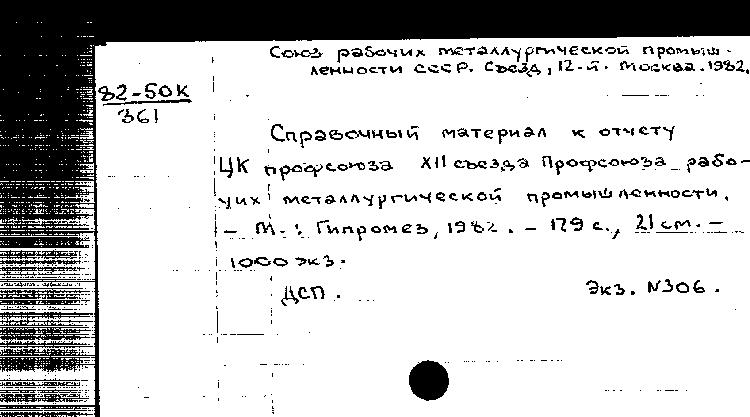 Союз рабочих металлургической промыш-
ленности СССР. Съезд, 12-й. Москва. 1982.
82-50К
361
Справочный материал к отчету
ЦК профсоюза XII съезда Профсоюза рабо-
чих металлургической промышленности.
- М.: Гипромез, 1982. - 179 с., 21 см. -
1000 экз.
ДСП.
Экз. N306.